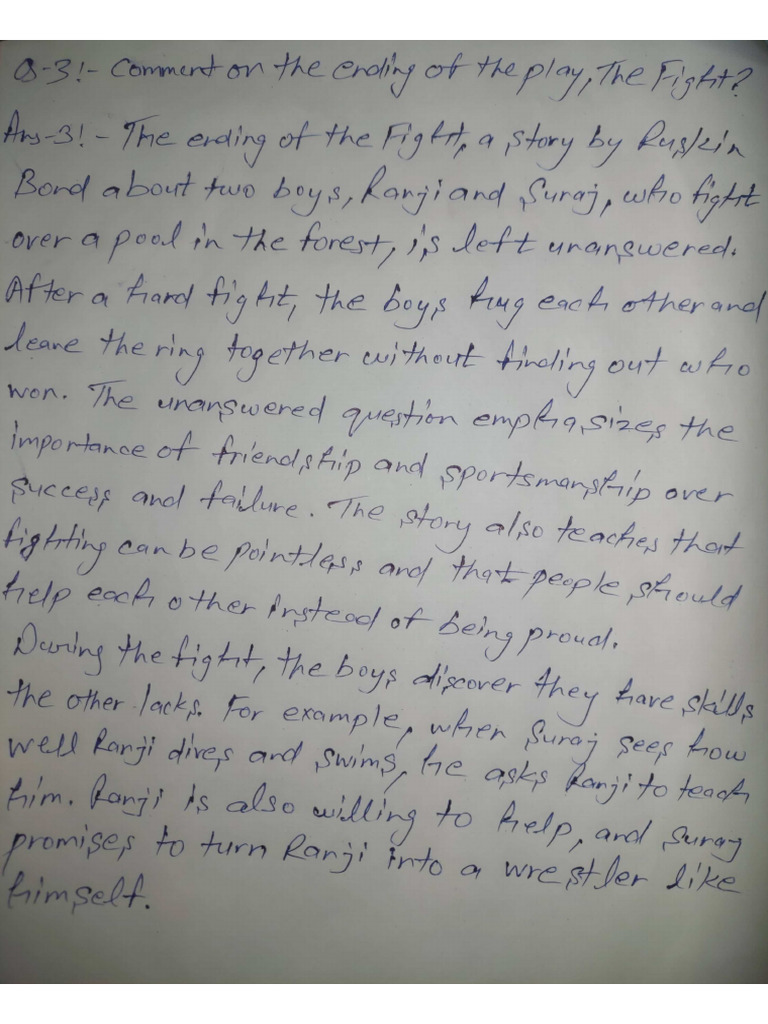 Q-3!- Comment on the ending of the play, The Fight?
Ans-3! - The ending of the Fight, a story by Ruskin
Bond about two boys, Ranji and Suraj, who fight
over a pool in the forest, is left unanswered.
After a hard fight, the boys hug each other and
leave the ring together without finding out who
won. The unanswered question emphasizes the
importance of friendship and sportsmanship over
success and failure. The story also teaches that
fighting can be pointless and that people should
help each other instead of being proud.
During the fight, the boys discover they have skills
the other lacks. For example, when Suraj sees how
well Ranji dives and swims, he asks Ranji to teach
him. Ranji is also willing to help, and Suraj
promises to turn Ranji into a wrestler like
himself.